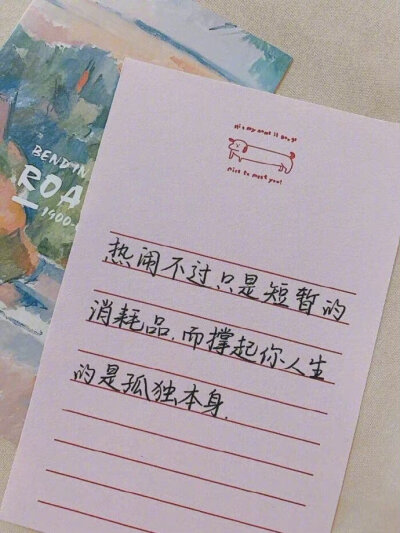 BENDIN
ROA
1900-
hi~ my name is
nice to meet you!
热闹不过只是短暂的
消耗品,而撑起你人生
的是孤独本身.